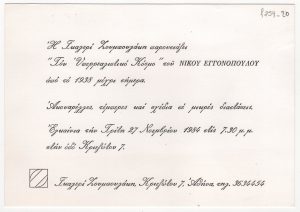 f254-20
Ἡ Γκαλερί Ζουμπουλάκη παρουσιάζει
"Τόν Ὑπερρεαλιστικό Κόσμο" τοῦ ΝΙΚΟΥ ΕΓΓΟΝΟΠΟΥΛΟΥ
ἀπό τό 1938 μέχρι σήμερα.
Ἀκουαρέλλες, τέμπερες καί σχέδια σέ μικρές διαστάσεις.
Ἐγκαίνια τήν Τρίτη 27 Νοεμβρίου 1984 στίς 7.30 μ.μ.
στήν ὁδό Κριεζώτου 7.
Γκαλερί Ζουμπουλάκη, Κριεζώτου 7, Ἀθήνα, τηλ. 3634454